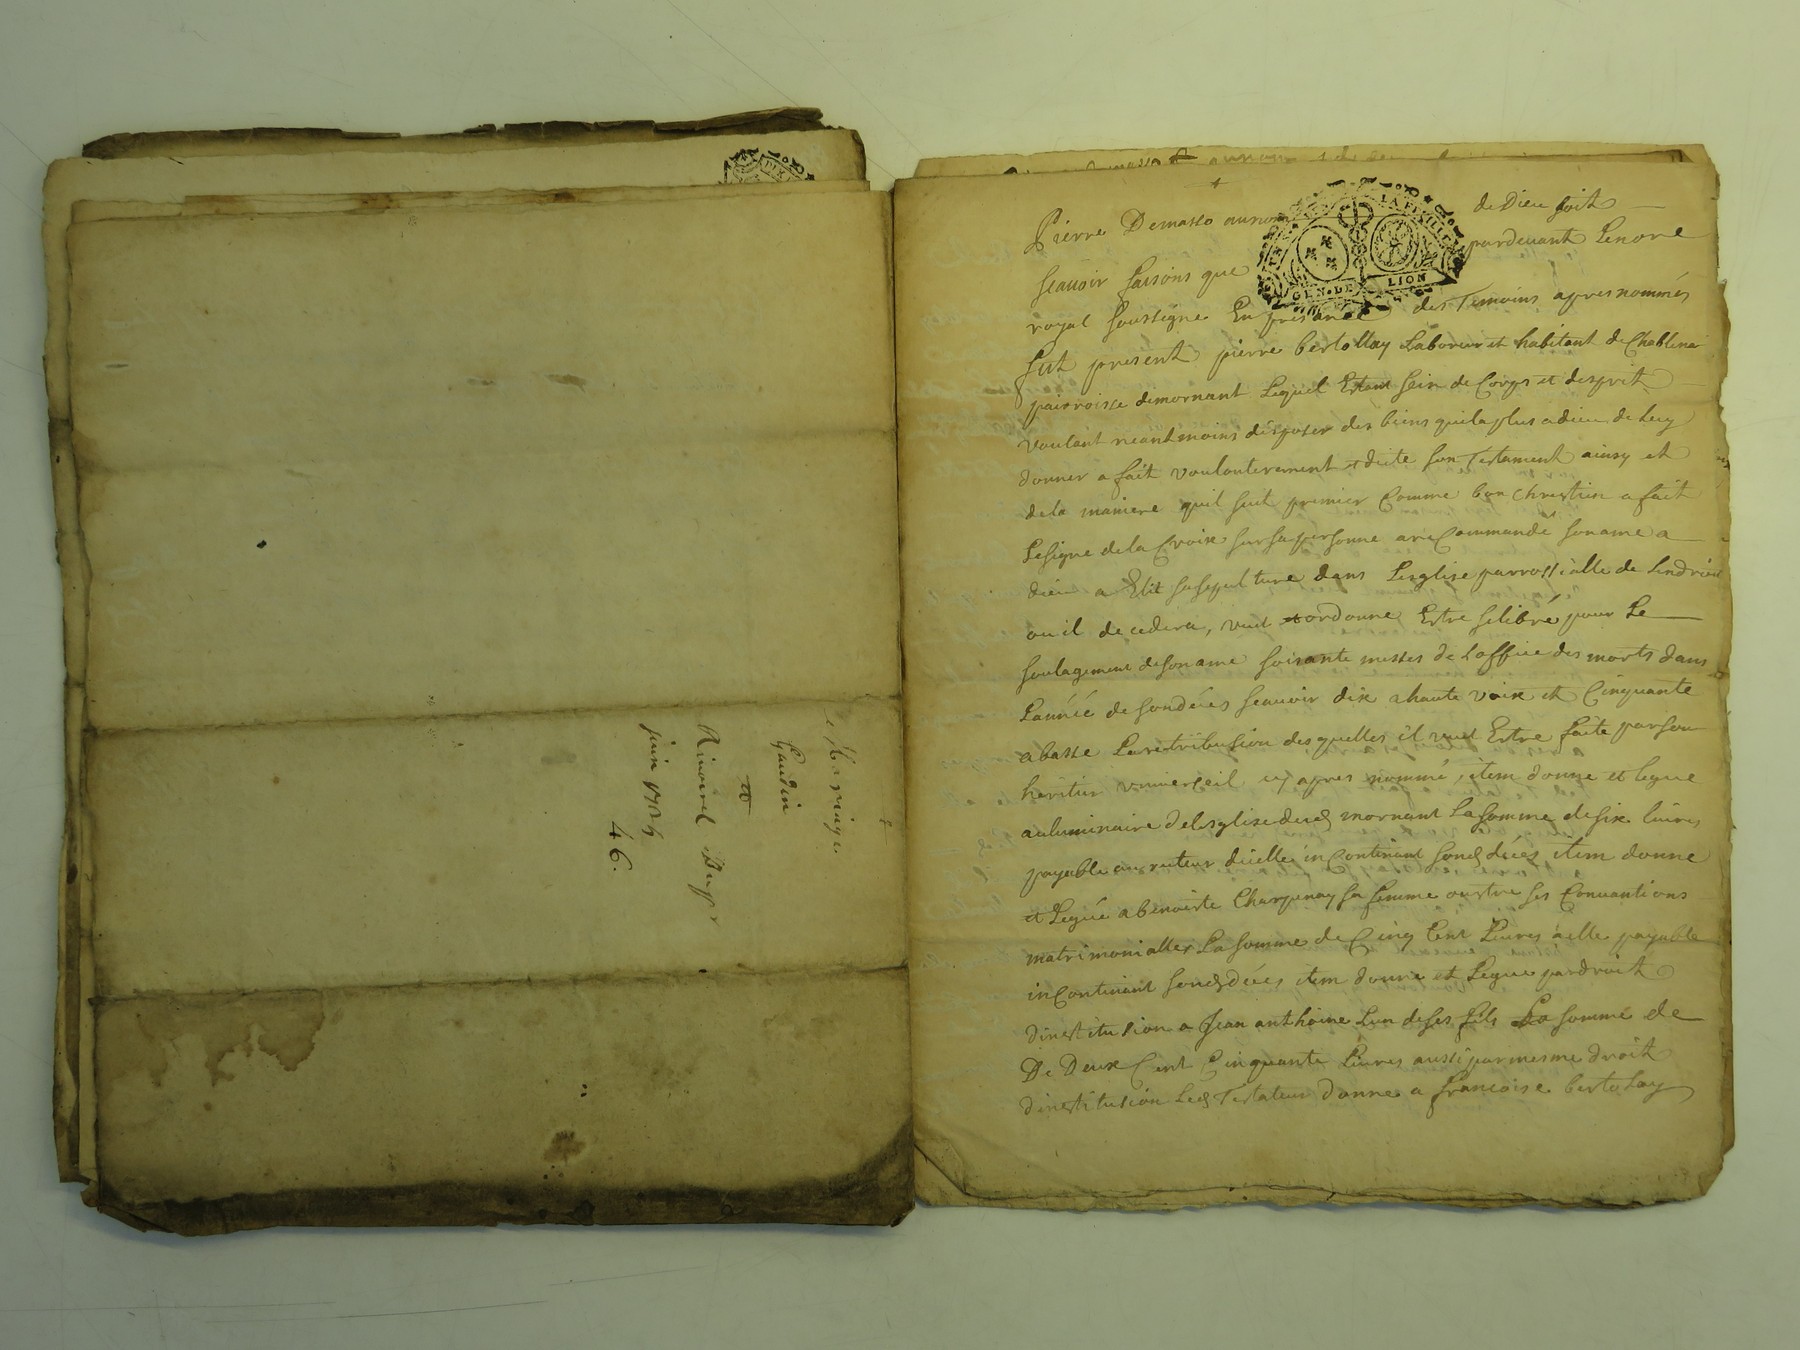 Mariage
Gaudin
et
Rinoirel Dupr
juin 1704
46.
Pierre Demasso au nom de Dieu soit
scauoir faisons que pardeuant Lenore
royal soussigne En presance des Temoins apres nommés
fut present pierre bertollay Laboreur et habitant de Chablenas
pairoisse demornant Lequel Estant sein de Corps et desprit
voulant neantmoins disposer des biens quila plus adieu de luy
donner a fait voulonterement et dicte son Testament ainsy et
dela maniere quil suit premier Comme bon Chrestien a fait
Lesigne dela Croix sur sa personne arecommandé soname a
dieu a Elit sasepulture dans Lesglise parrossialle de
ou il decedera, veut et ordonne Estre selibré pour Le
soulagement desoname soixante messes de Loffice des morts dans
Lannéé de sondécés scauoir dix a haute voix et Cinquante
abasse Laretribusion desquelles il veut Estre faite parson
heritier vniuerseil cy apres nommé, item donne et legue
auluminaire delesglise dud mornant La somme desix liures
payable au recteur dicelle inContinant sond décés, item donne
et Legué abenoiste Charpenay sa femme ourtre ses Conuantions
matrimonialles La somme de Cinq Cent Liures aelle payable
inContinant sond décés item donne et Legue par droit
dinstitusion a Jean anthoine Lun de ses fils La somme de
De Deux Cent Cinquante Liures aussi par mesme droit
dinstitusion Led Testateur donne a francoise bertolay
GEN. DE LION